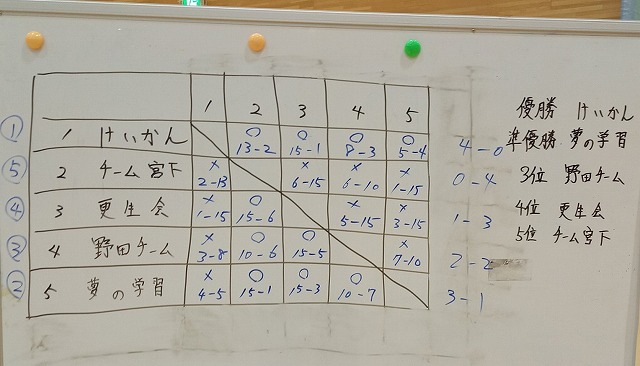 1 2 3 4 5
① 1 けいかん ○ 13-2 ○ 15-1 ○ 8-3 ○ 5-4 4-0
⑤ 2 チーム宮下 × 2-13 × 6-15 × 6-10 × 1-15 0-4
④ 3 更生会 × 1-15 ○ 15-6 × 5-15 × 3-15 1-3
③ 4 野田チーム × 3-8 ○ 10-6 ○ 15-5 × 7-10 2-2
② 5 夢の学習 × 4-5 ○ 15-1 ○ 15-3 ○ 10-7 3-1
優勝 けいかん
準優勝 夢の学習
3位 野田チーム
4位 更生会
5位 チーム宮下